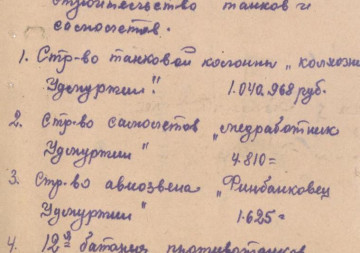 строительство танков и
самолетов.
1. Стр-во танковой колонны „колхозн
Удмуртии". 1.040.968 руб.
2. Стр-во самолетов „медработник
Удмуртии" 4.810=
3. Стр-во авиозвена „Финбанковец
Удмуртии" 1.625=
4. 12я батарея противотанков